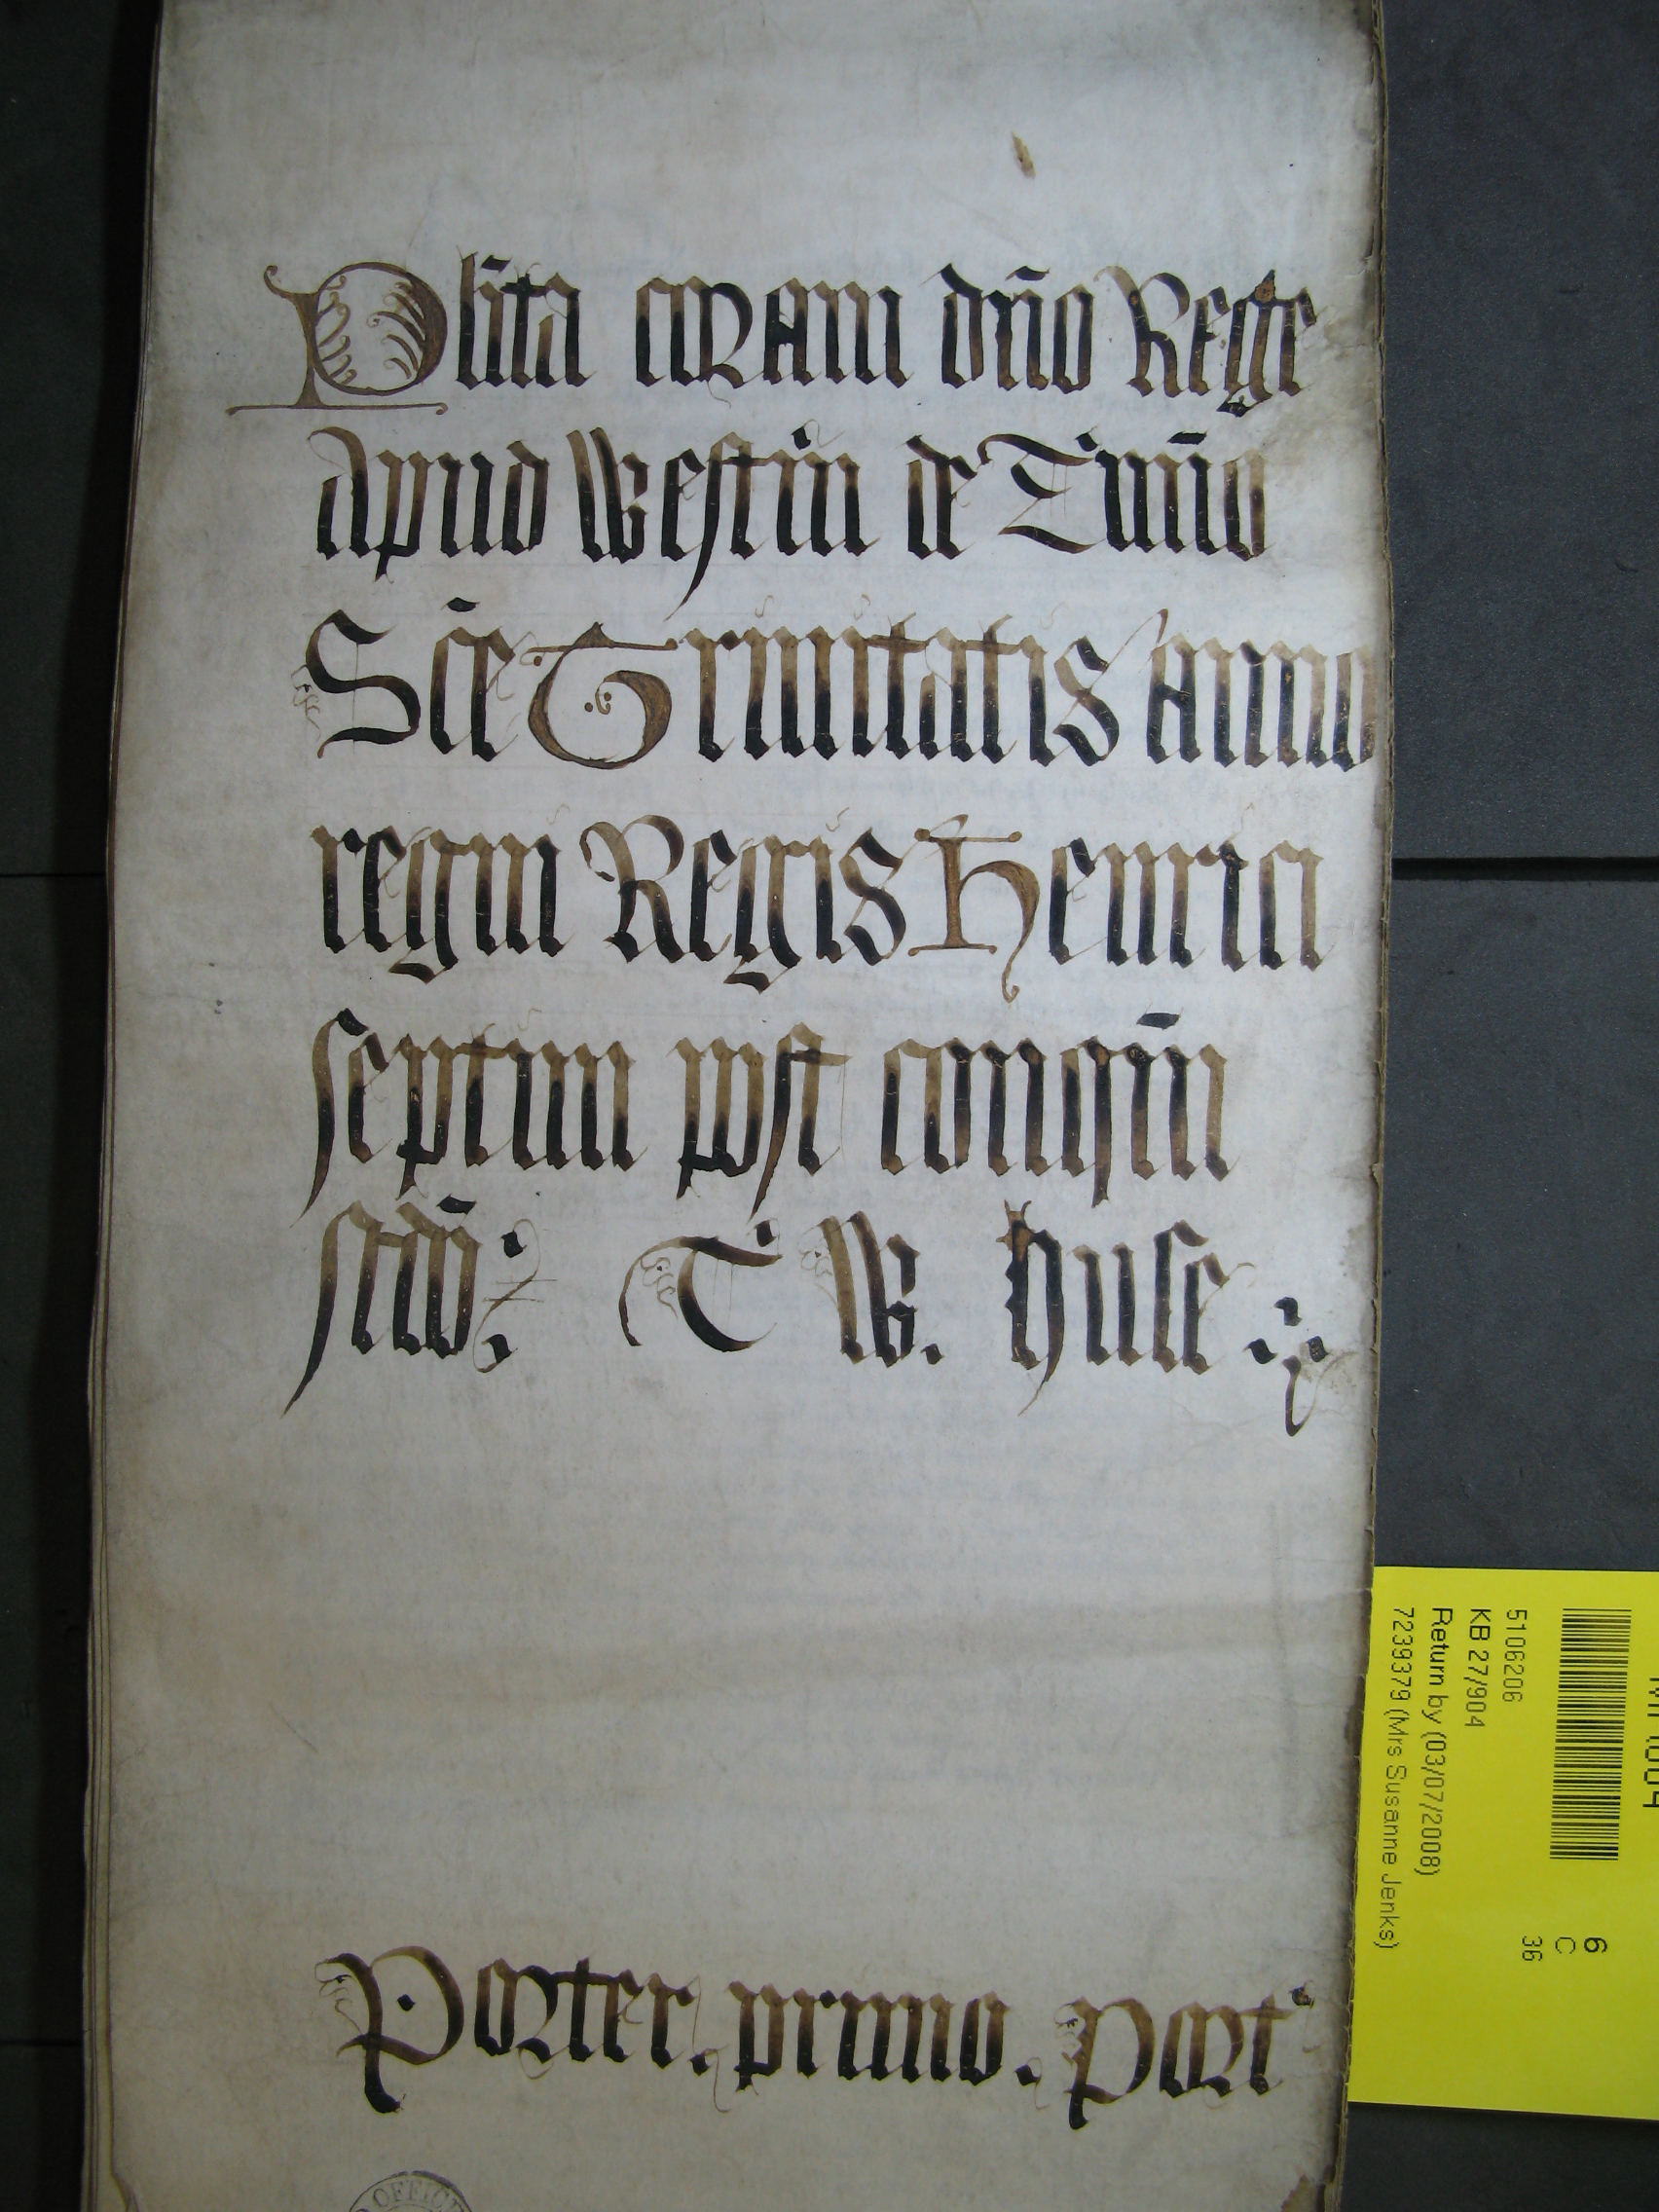 Pli̅ta coram dn̅o Rege
apud Westm̅ de T̅mi̅o
Sc̅e Trinitatis anno
regni Regis Henrici
septimi post conqm̅
scd̅o T W. Huse
Porter. primo. Port
5106206
KB 27/904
Return by (03/07/2008)
7239379 (Mrs Susanne Jenks)
6
C
36
OFFICE